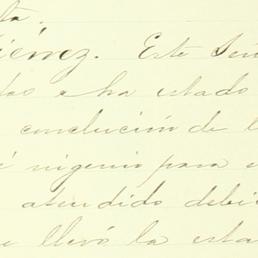 ta.
iérrez. Este Señ
tos e ha estado
conclución de l
é nigenio para e
atendido debi
e llevó la esta